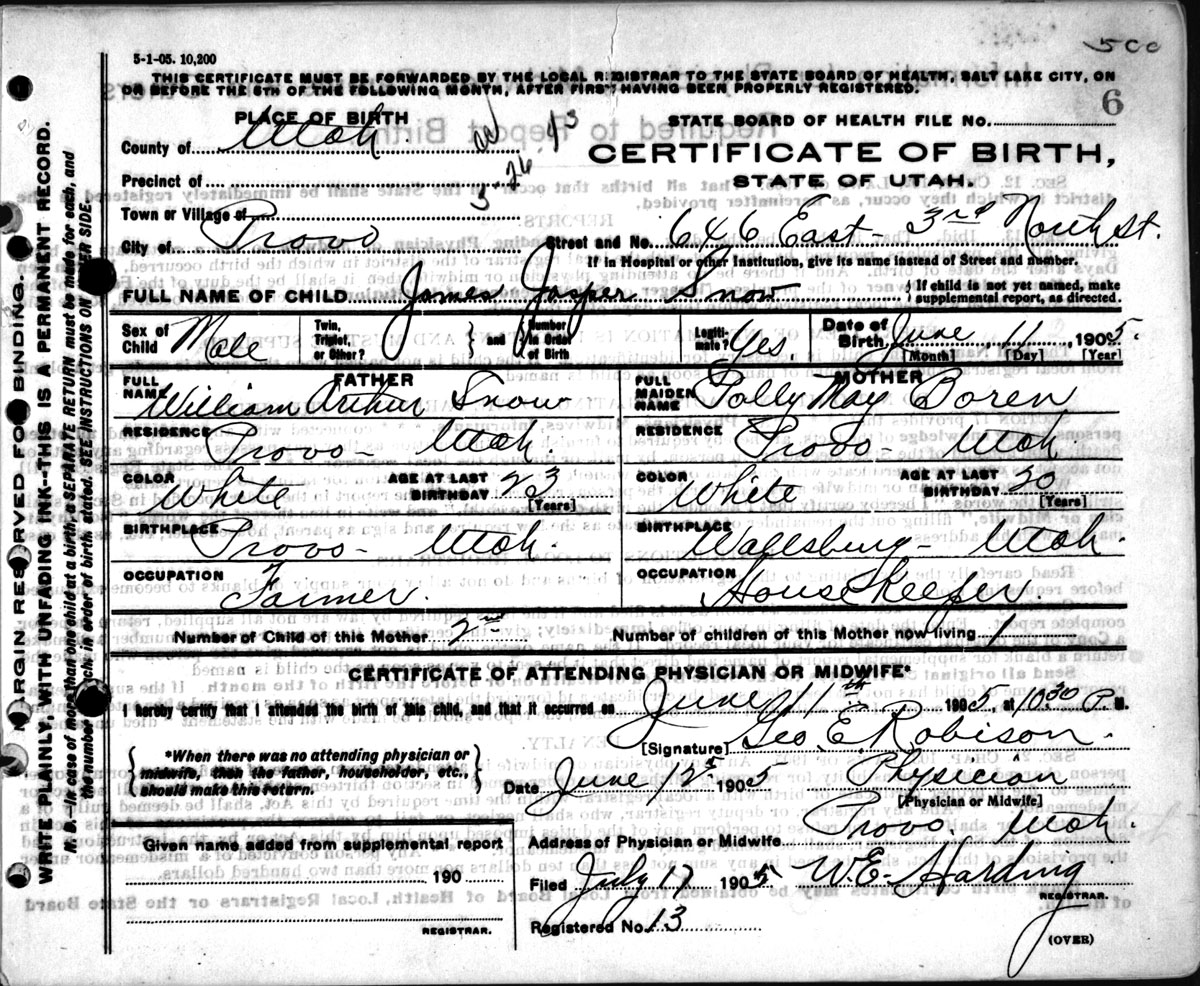 500
5-1-05. 10,200
THIS CERTIFICATE MUST BE FORWARDED BY THE LOCAL REGISTRAR TO THE STATE BOARD OF HEALTH, SALT LAKE CITY, ON
OR BEFORE THE 5TH OF THE FOLLOWING MONTH, AFTER FIRST HAVING BEEN PROPERLY REGISTERED.
6
PLACE OF BIRTH
STATE BOARD OF HEALTH FILE NO.
County of Utah.
CERTIFICATE OF BIRTH,
STATE OF UTAH.
Precinct of
3 26 43
Town or Village of
City of Provo
Street and No. 646 East - 3rd North St.
If in Hospital or other Institution, give its name instead of Street and number.
FULL NAME OF CHILD. James Jasper Snow
If child is not yet named, make supplemental report, as directed.
Sex of Child Male
Twin, Triplet, or Other? } and { Number in Order of Birth
Legitimate? Yes
Date of Birth, June, 11, 1905.
[Month] [Day] [Year]
FATHER
FULL NAME William Arthur Snow
RESIDENCE Provo - Utah
COLOR White
AGE AT LAST BIRTHDAY 23
[Years]
BIRTHPLACE Provo - Utah.
OCCUPATION Farmer.
MOTHER
FULL MAIDEN NAME Polly May Boren
RESIDENCE Provo - Utah
COLOR White
AGE AT LAST BIRTHDAY 20
[Years]
BIRTHPLACE Wallsburg - Utah.
OCCUPATION House Keeper
Number of Child of this Mother 2nd
Number of children of this Mother now living 1
CERTIFICATE OF ATTENDING PHYSICIAN OR MIDWIFE*
I hereby certify that I attended the birth of this child, and that it occurred on June 11th 1905, at 10:30 P. M.
[Signature] Geo. E. Robison.
*When there was no attending physician or
midwife, then the father, householder, etc.,
should make this return.
Date June 12 1905
Physician
[Physician or Midwife]
Address of Physician or Midwife Provo Utah.
Given name added from supplemental report
190
REGISTRAR.
Filed July 17 1905 W.E. Harding
REGISTRAR.
Registered No. 13
(OVER)
MARGIN RESERVED FOR BINDING.
WRITE PLAINLY, WITH UNFADING INK--THIS IS A PERMANENT RECORD.
N. B.--In case of more than one child at a birth, a SEPARATE RETURN must be made for each, and
the number of each, in order of birth, stated. SEE INSTRUCTIONS ON OTHER SIDE.